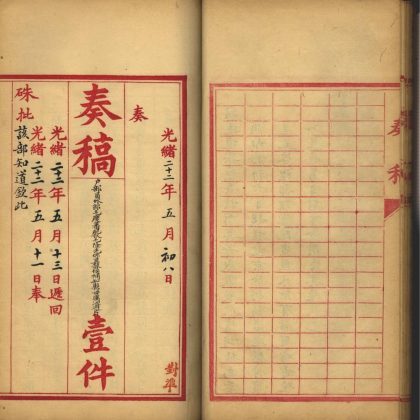 奏
光緒二十二年五月初八日
奏稿
壹件
光緒二十二年五月十三日遞回
光緒二十二年五月十一日奉
硃批
該部知道欽此
對準
奏稿